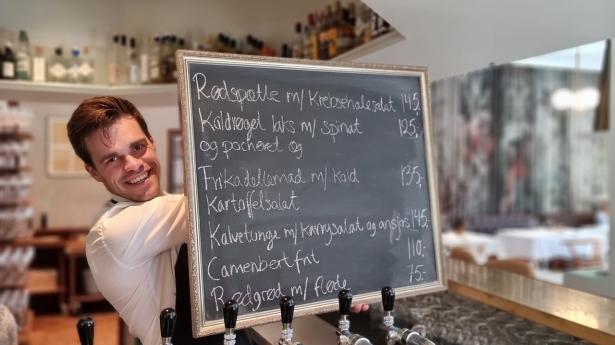 Rødspætte m/ Krebsehalesalat 145,
Koldrøget laks m/ spinat 125,
og pocheret æg
Frikadellemad m/ kold 135,
kartoffelsalat
Kalvetunge m/ karrysalat og ansjos 145,
Camenbert frit 110,-
Rødgrød m/ fløde 75,-